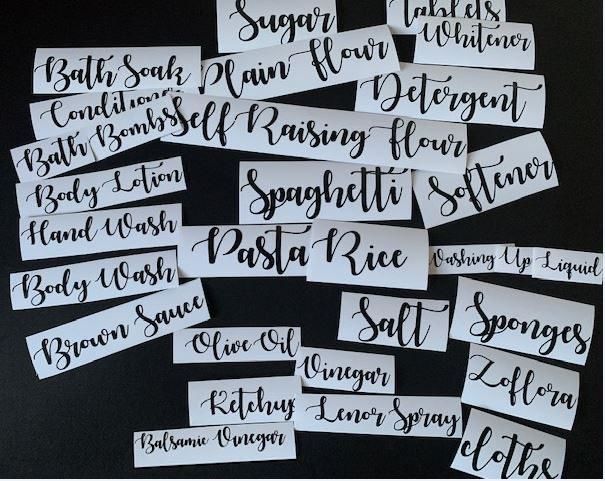 Sugar
Tablets
Whitener
Bath Soak
Plain flour
Detergent
Conditioner
Bath Bombs
Self Raising flour
Body Lotion
Spaghetti
Softener
Hand Wash
Pasta
Rice
Washing Up Liquid
Body Wash
Brown Sauce
Salt
Sponges
Olive Oil
Vinegar
Zoflora
Ketchup
Lenor Spray
Balsamic Vinegar
cloths